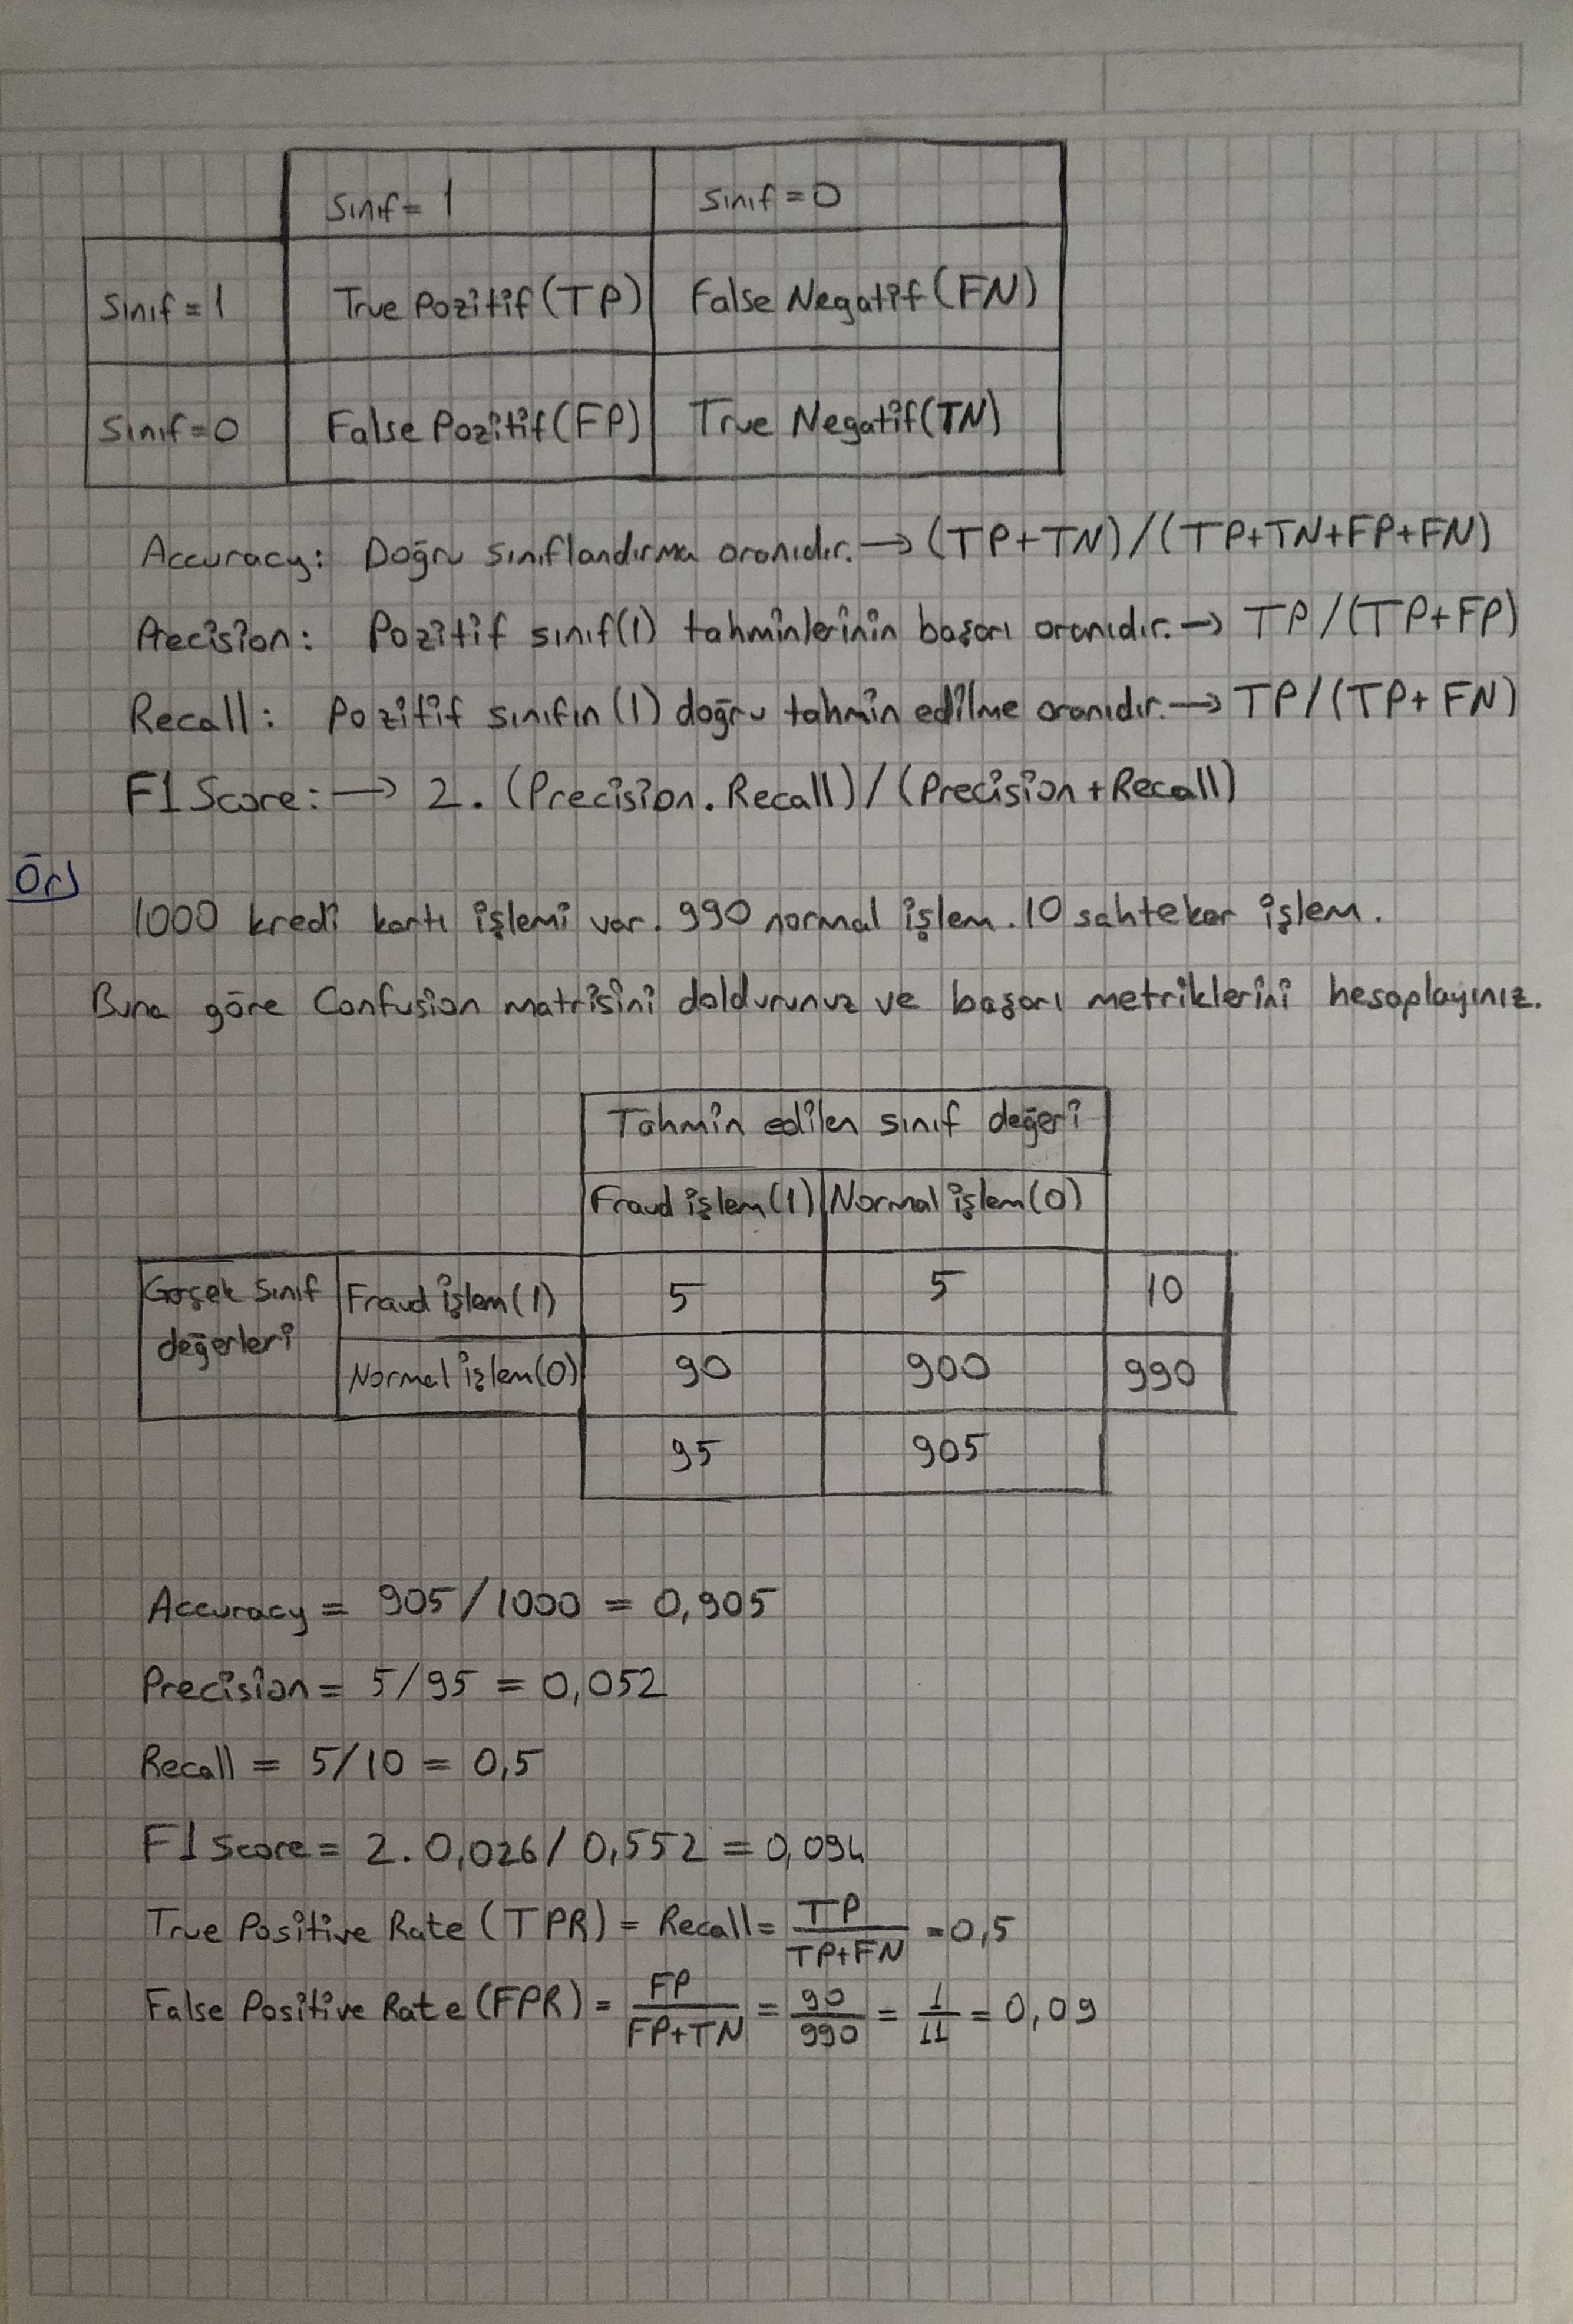 Sınıf = 1 Sınıf = 0
Sınıf = 1 True Pozitif (TP) False Negatif (FN)
Sınıf = 0 False Pozitif (FP) True Negatif (TN)
Accuracy: Doğru sınıflandırma oranıdır. → (TP+TN)/(TP+TN+FP+FN)
Precision: Pozitif sınıf(1) tahminlerinin başarı oranıdır. → TP/(TP+FP)
Recall: Pozitif sınıfın (1) doğru tahmin edilme oranıdır. → TP/(TP+FN)
F1 Score: → 2. (Precision. Recall)/(Precision+Recall)
Ör)
1000 kredi kartı işlemi var. 990 normal işlem. 10 sahtekar işlem.
Buna göre Confusion matrisini doldurunuz ve başarı metriklerini hesaplayınız.
Tahmin edilen sınıf değeri
Fraud işlem (1) Normal işlem (0)
Gerçek sınıf değerleri Fraud işlem (1) 5 5 10
Normal işlem (0) 90 900 990
95 905
Accuracy = 905/1000 = 0,905
Precision = 5/95 = 0,052
Recall = 5/10 = 0,5
F1 Score = 2. 0,026/0,552 = 0,094
True Positive Rate (TPR) = Recall = TP/TP+FN = 0,5
False Positive Rate (FPR) = FP/FP+TN = 90/990 = 1/11 = 0,09